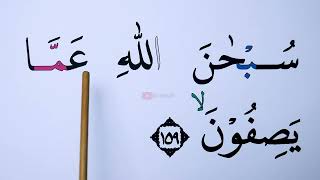 سُبْحٰنَ اللّٰهِ عَمَّا
يَصِفُوْنَ ۙ ﴿١٥٩﴾